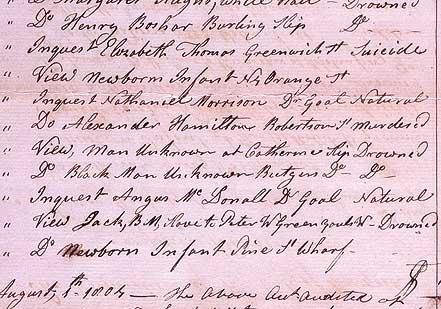 Drowned
" Do Henry Boshar Burling Slip Do
" Inquest Elizabeth Thomas Greenwich St Suicide
" View Newborn Infant No Orange St
" Inquest Nathaniel Morrison Dr Goal Natural
" Do Alexander Hamilton Robertson St Murdered
" View Man Unknown at Catherine Slip Drowned
" Do Black Man Unknown Rutgers Do Do
" Inquest Angus Mc Donall D Goal Natural
" View Jack, B.M. Slave to Peter W - Drowned
" Do Newborn Infant Pine St Wharf -
August 1th 1804 - The Above Acct audited